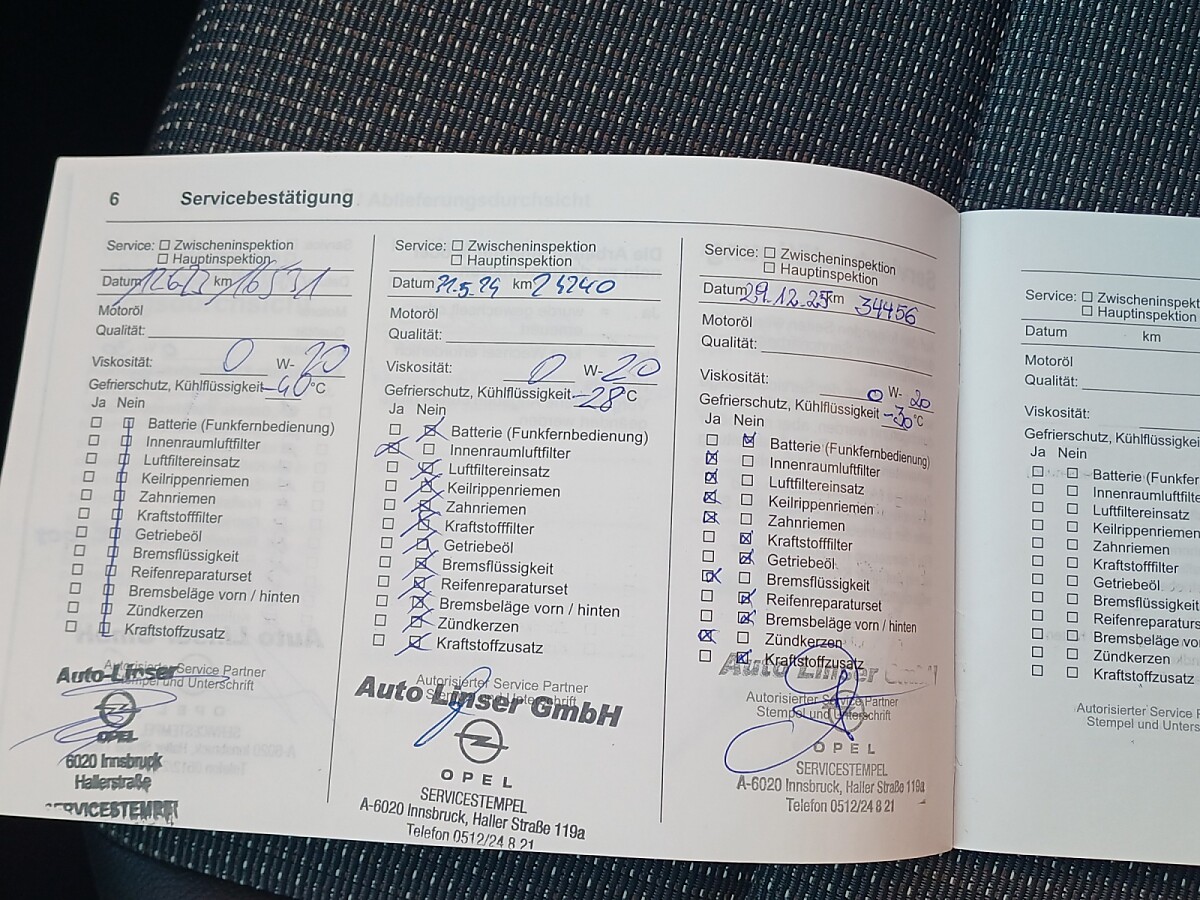 6 Servicebestätigung
Service: Zwischeninspektion
Hauptinspektion
Datum 12623 km 16531
Motoröl
Qualität:
Viskosität: 0 W- 20
Gefrierschutz, Kühlflüssigkeit -40 °C
Ja Nein
Batterie (Funkfernbedienung)
Innenraumluftfilter
Luftfiltereinsatz
Keilrippenriemen
Zahnriemen
Kraftstofffilter
Getriebeöl
Bremsflüssigkeit
Reifenreparaturset
Bremsbeläge vorn / hinten
Zündkerzen
Kraftstoffzusatz
Autorisierter Service Partner
Stempel und Unterschrift
Auto-Linser
OPEL
6020 Innsbruck
Hallerstraße
SERVICESTEMPEL
Service: Zwischeninspektion
Hauptinspektion
Datum 21.5.24 km 24240
Motoröl
Qualität:
Viskosität: 0 W- 20
Gefrierschutz, Kühlflüssigkeit -28 °C
Ja Nein
Batterie (Funkfernbedienung)
Innenraumluftfilter
Luftfiltereinsatz
Keilrippenriemen
Zahnriemen
Kraftstofffilter
Getriebeöl
Bremsflüssigkeit
Reifenreparaturset
Bremsbeläge vorn / hinten
Zündkerzen
Kraftstoffzusatz
Autorisierter Service Partner
Stempel und Unterschrift
Auto Linser GmbH
OPEL
SERVICESTEMPEL
A-6020 Innsbruck, Haller Straße 119a
Telefon 0512/24 8 21
Service: Zwischeninspektion
Hauptinspektion
Datum 29.12.25 km 34456
Motoröl
Qualität:
Viskosität: 0 W- 20
Gefrierschutz, Kühlflüssigkeit -30 °C
Ja Nein
Batterie (Funkfernbedienung)
Innenraumluftfilter
Luftfiltereinsatz
Keilrippenriemen
Zahnriemen
Kraftstofffilter
Getriebeöl
Bremsflüssigkeit
Reifenreparaturset
Bremsbeläge vorn / hinten
Zündkerzen
Kraftstoffzusatz
Auto Linser GmbH
Autorisierter Service Partner
Stempel und Unterschrift
OPEL
SERVICESTEMPEL
A-6020 Innsbruck, Haller Straße 119a
Telefon 0512/24 8 21
Service: Zwischeninspektion
Hauptinspektion
Datum km
Motoröl
Qualität:
Viskosität:
Gefrierschutz, Kühlflüssigke
Ja Nein
Batterie (Funkfer
Innenraumluftfilte
Luftfiltereinsatz
Keilrippenriemen
Zahnriemen
Kraftstofffilter
Getriebeöl
Bremsflüssigkei
Reifenreparaturs
Bremsbeläge vo
Zündkerzen
Kraftstoffzusatz
Autorisierter Service P
Stempel und Unters